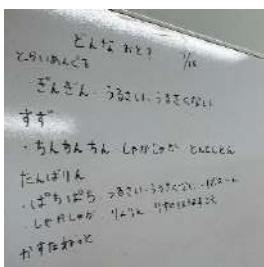 どんな おと? 1/16
とらいあんぐる
・ぎんぎん・うるさい・うるさくない
すず
・ちんちんちん しゃかしゃか とんとんとん
たんばりん
・ぱちぱち うるさい・うるさくない
・しゃかしゃか りんりん
かすたねっと